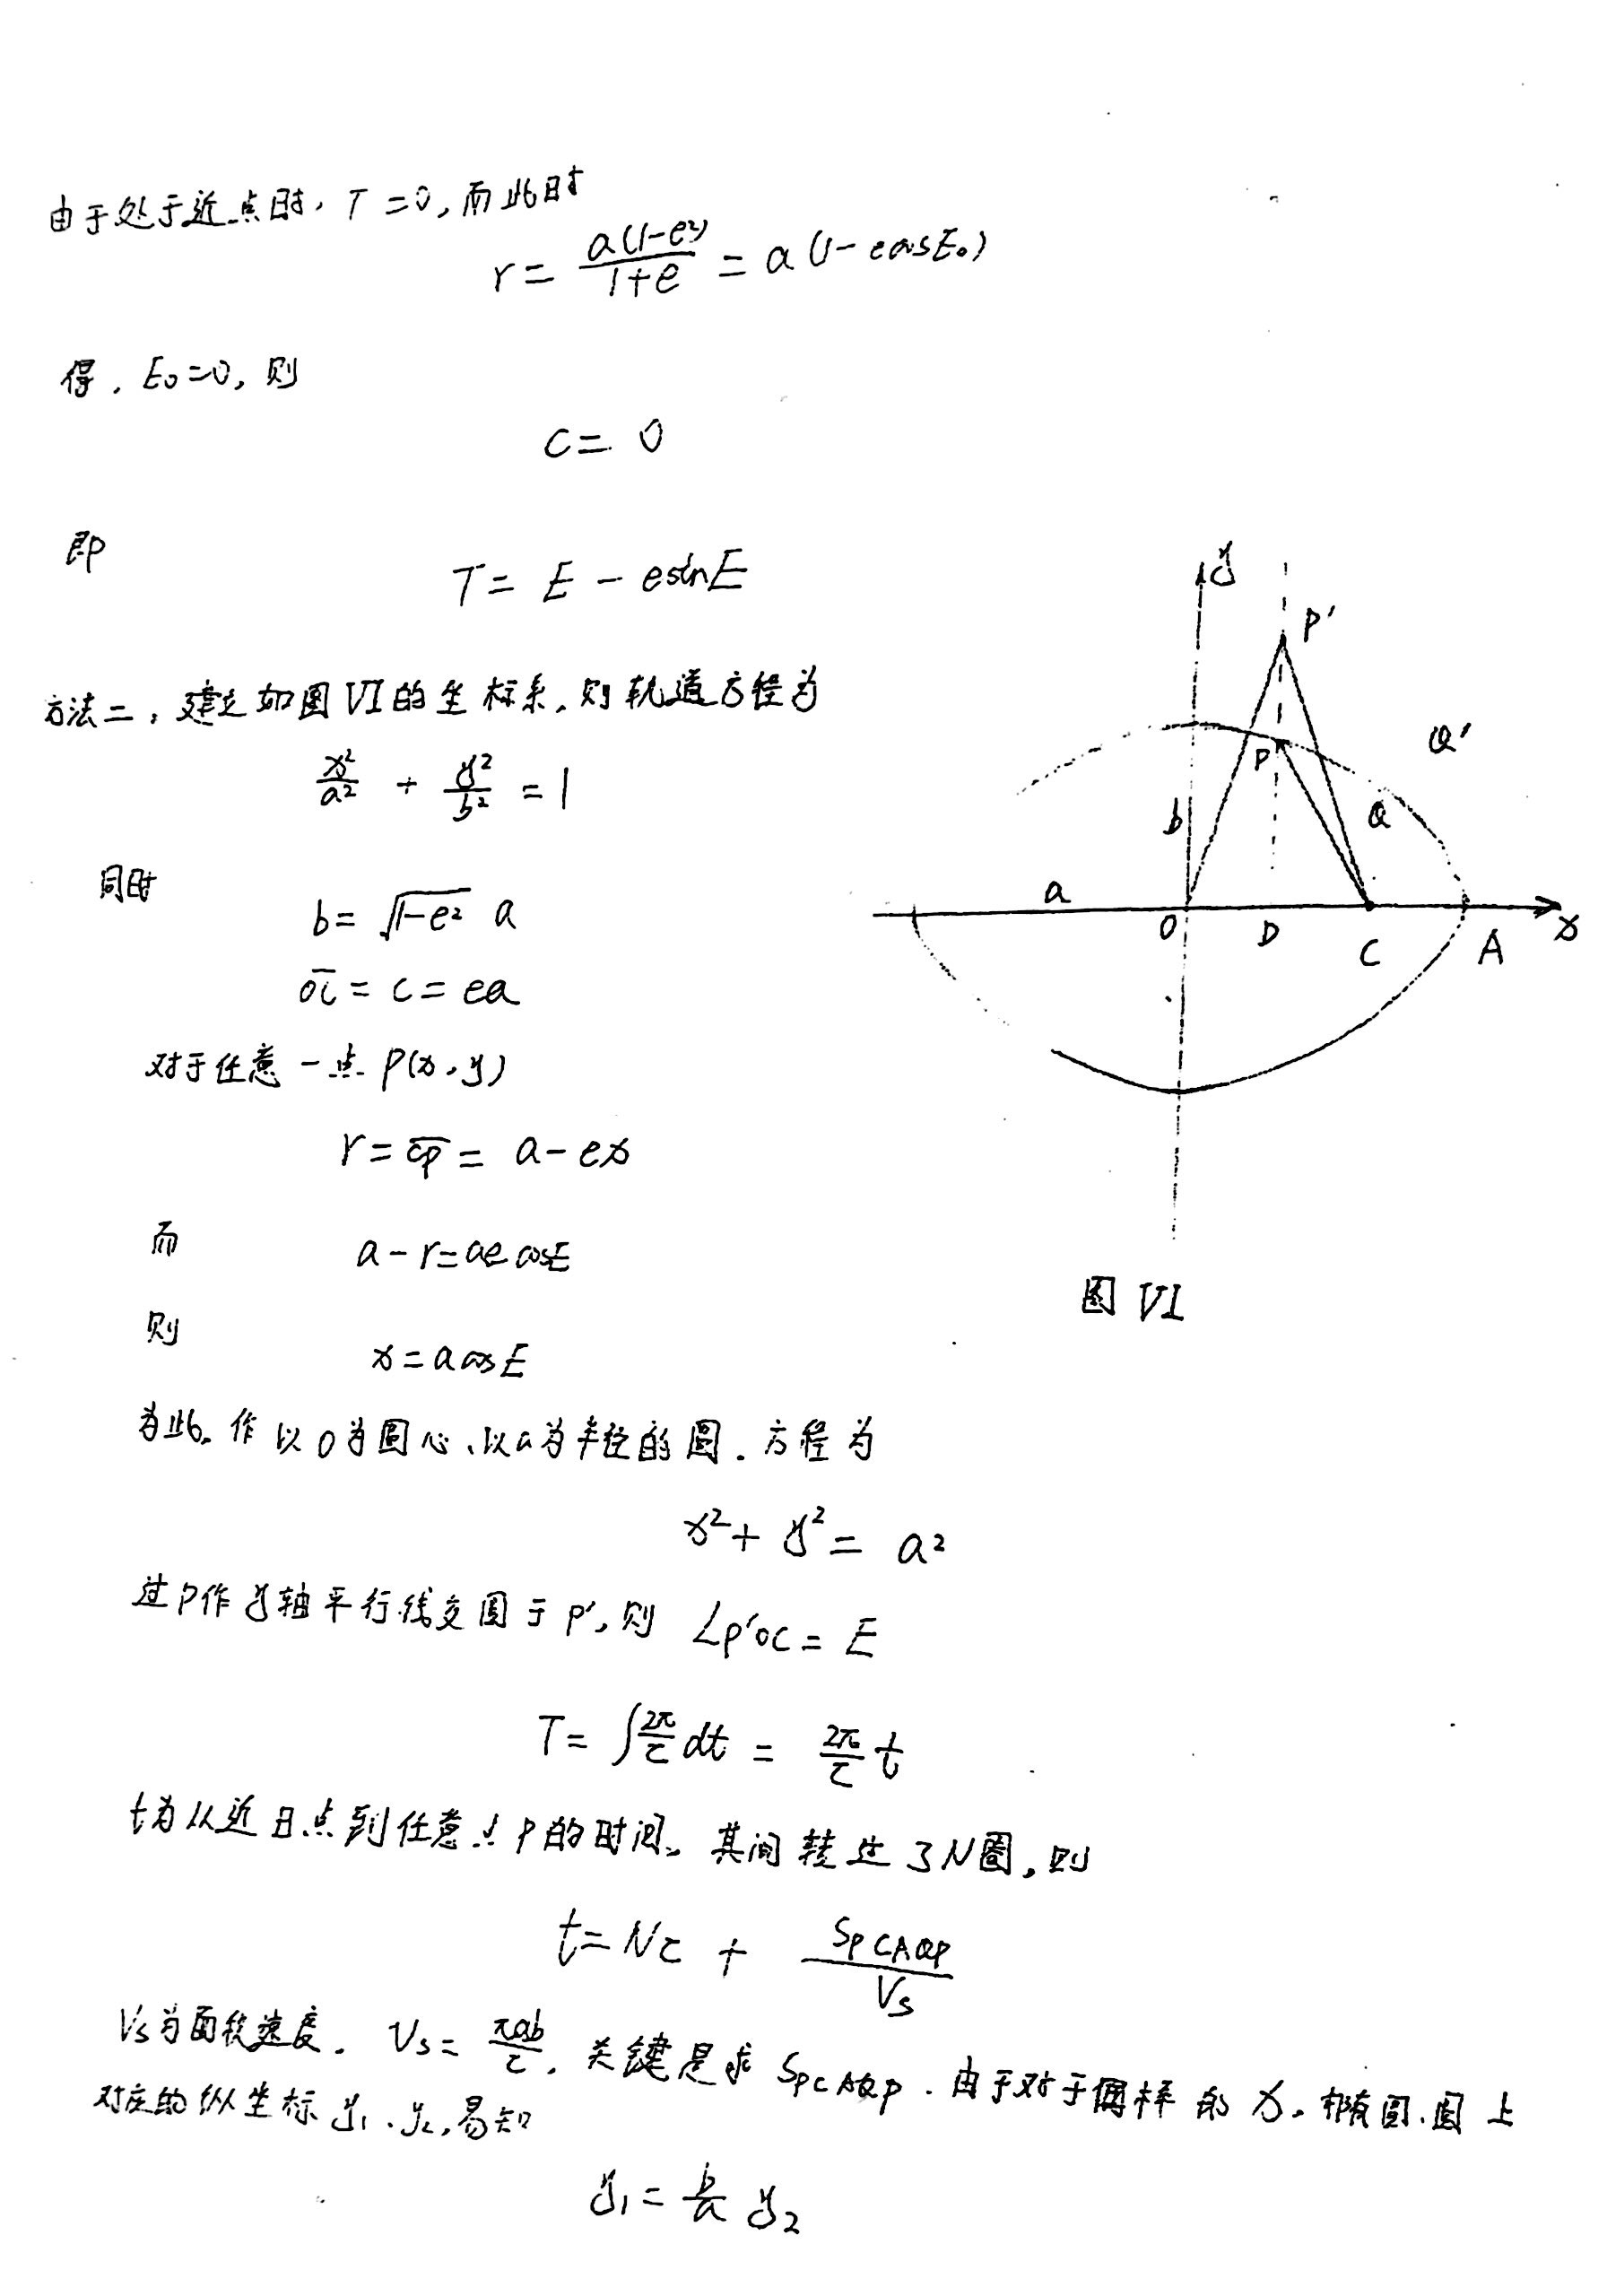 由于处于近点时，T=0，而此时
r = \frac{a(1-e^2)}{1+e} = a(1-ecosE₀)
得，E₀=0，则
C = 0
即
T = E - esinE
方法二，建立如图VI的坐标系，则轨道方程为
\frac{x^2}{a^2} + \frac{y^2}{b^2} = 1
同时
b = \sqrt{1-e^2} a
\overline{oc} = c = ea
对于任意一点 P(x,y)
r = \overline{cp} = a - ex
而 a - r = ae cosE
则
x = a cosE
为此，作以O为圆心、以a为半径的圆．方程为
x² + y² = a²
过P作y轴平行线交圆于P'，则 ∠P'OC = E
T = ∫\frac{2π}{τ}dt = \frac{2π}{τ}t
t为从近日点到任意点P的时间，其间转过了N圈，则
t = Nτ + \frac{S_{PCAQP}}{V_s}
Vs为面积速度．Vs = \frac{πab}{τ}，关键是求 S_{PCAQP}．由于对于同样的x，椭圆、圆上
对应的纵坐标 y₁、y₂，易知
y₁ = \frac{b}{a} y₂
y
P'
Q'
P
b
Q
a
O
D
C
A
x
图 VI